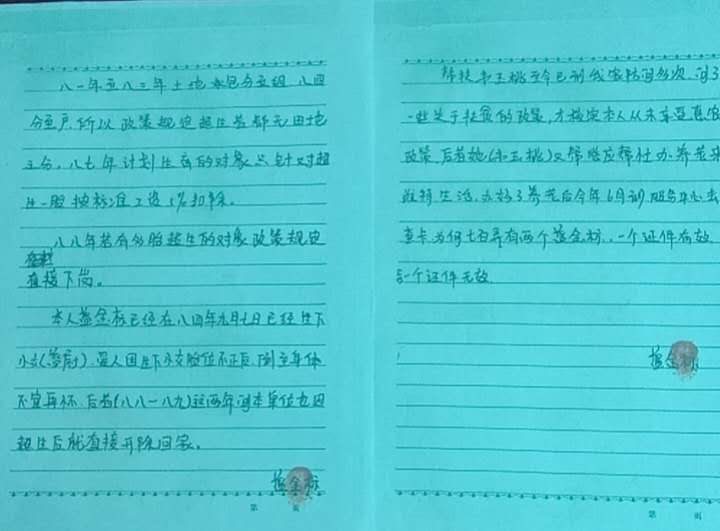 八一年至八三年土地承包分至组，八四
分至户，所以政策规定超生者都无田地
可分，八七年计划生育的对象只针对超
生一胎按标准工资10%扣除。
八八年若有多胎超生的对象政策规定
直接下岗。
本人 金标已经在八四年九月七日已经生下
小女( )。 人因生下小女胎位不正后，倒至身体
不宜再怀，后者(八八一八九)这两年间本单位也因
超生后就直接开除回家。
金标
第 页
至今已到我家访问多次，问了
一些关于扶贫的政策，才 本人从未享受惠农
政策，后 她( 玉桃)又帮 应帮社办，养老来
维持生活，办好了养老后今年6月到服务中心去
查卡为何七百弄有两个 金标，一个证件有效
另一个证件无效
金标
第 页